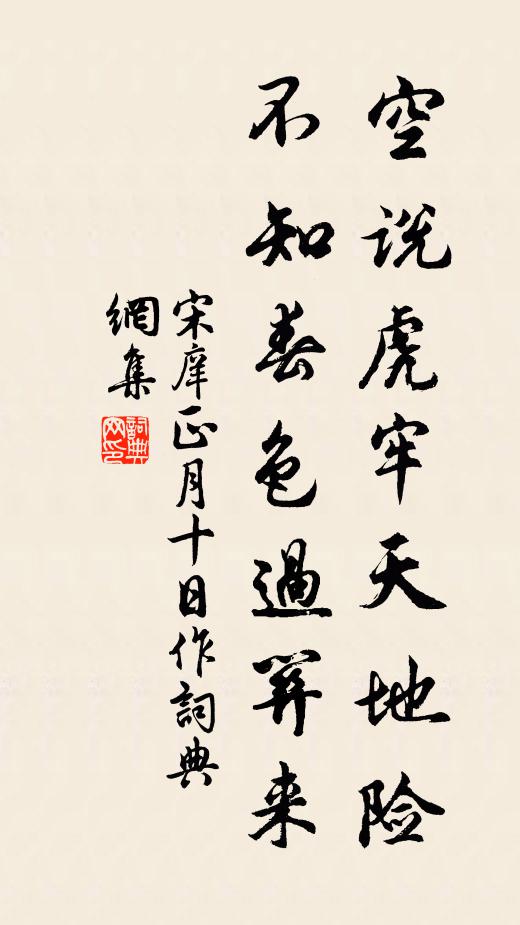 空说虎牢天地险
不知春色過関来
宋庠正月十日作詞典
網集
詞典
网印